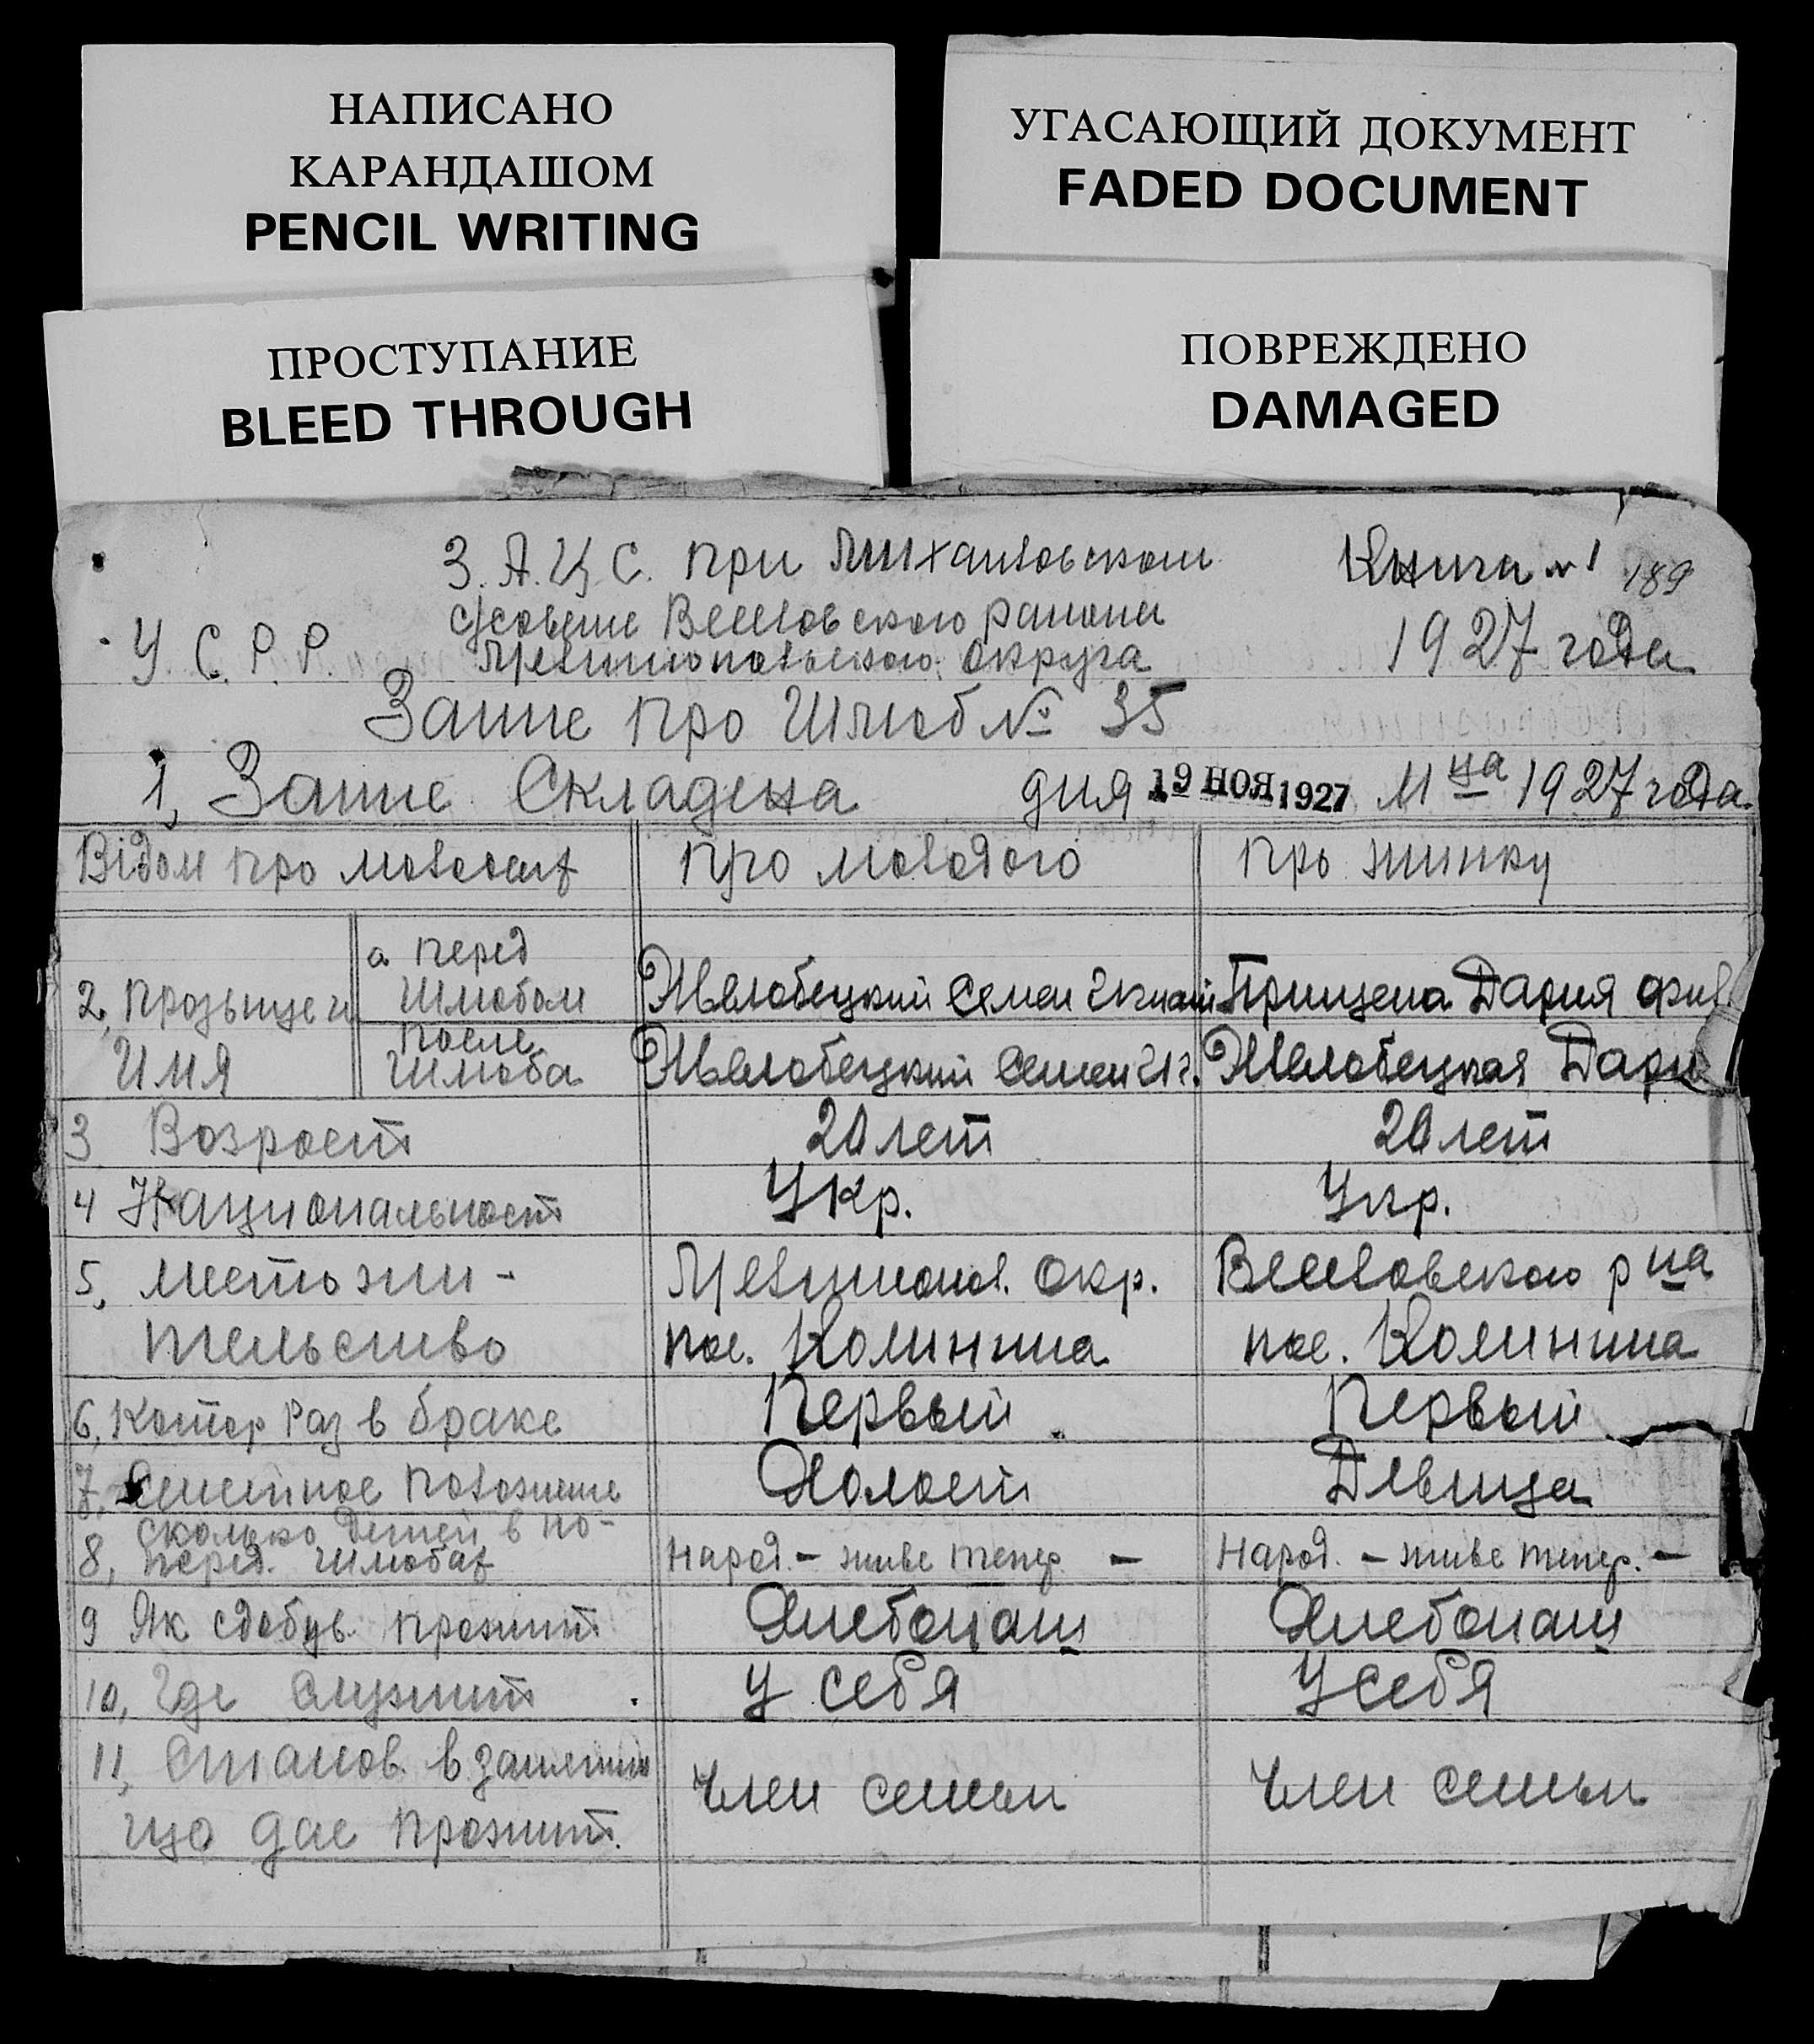 НАПИСАНО
КАРАНДАШОМ
PENCIL WRITING
УГАСАЮЩИЙ ДОКУМЕНТ
FADED DOCUMENT
ПРОСТУПАНИЕ
BLEED THROUGH
ПОВРЕЖДЕНО
DAMAGED
З. А. Ц С. при Михайловском Книга №1 189
с/совете Веселовского района
У. С. Р. Р. Мелитопольского округа 1927 года
Запис про Шлюб № 35
1, Запис Складена дня 19 НОЯ 1927 М ца 1927 года.
Відом про молодых про молодого про жинку
2, прозвище и Имя
а перед Шлюбом Жвлобецкий Семен Игнат Прищепа Дария Фил
после Шлюба Жвлобецкий Семен Иг. Жвлобецкая Дари
3 Возраст 20 лет 20 лет
4 Национальност Укр. Укр.
5, место жи- Мелитопол. окр. Веселовского р на
тельство пос. Калинина пос. Калинина
6, Котор Раз в браке Первый Первый
7, Семейное положение Холост Девица
сколько детей в по-
8, перед. шлюбах Народ. - живе тепер - Народ. - живе тепер. -
9 Як сдобув. прожит Хлебопаш Хлебопаш
10, Где служит У себя У себя
11, Станов. в занятии Член семьи Член семьи
що дае прожит.